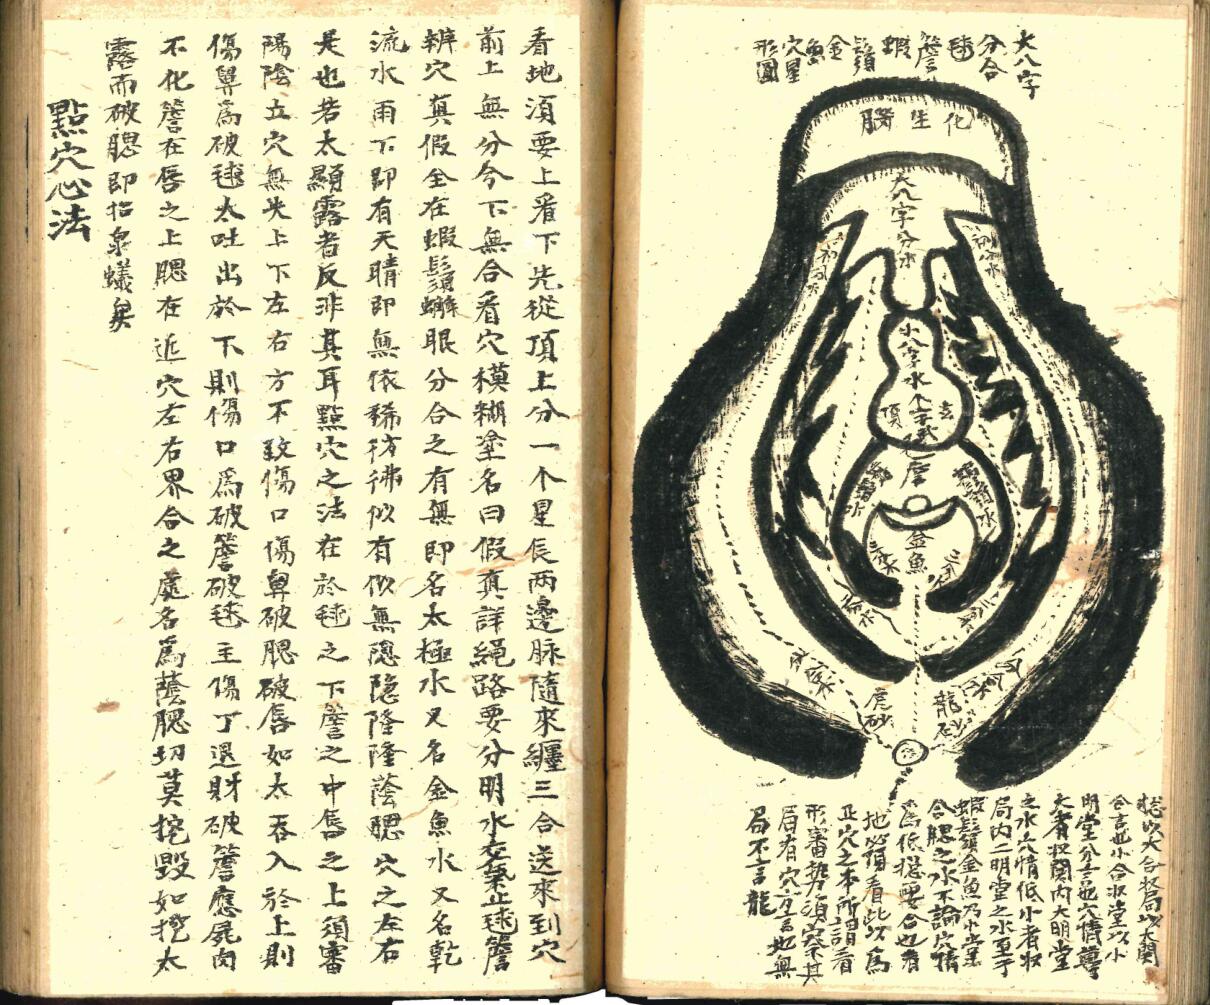 大八字
分合
毬
簷
蝦
鬚
金
魚
穴星
形圖
化生腦
大八字分水
小八字水
玄
頂
唇
蝦鬚水
金魚
龍砂
虎砂
總以大合收局以大關
合言也小合收堂以小
明堂分言也穴情尊
大者收關內大明堂
之水穴情低小者收
局內二明堂之水至于
蝦鬚金魚乃小堂
合腮之水不論穴情
低穩要合也看
地必須看此以為
正穴之本所謂看
形審勢須察其
局有穴方言地無
局不言龍
看地須要上看下先從頂上分一个星辰两邊脉隨來纏三合送來到穴
前上無分今下無合看穴模糊塗名曰假真詳繩路要分明水交葉止毬簷
辨穴真假全在蝦鬚蠏眼分合之有無即名太極水又名金魚水又名乾
流水雨下即有天晴即無依稀彷彿似有似無隱隱隆隆蔭腮穴之左右
是也若太顯露者反非其耳點穴之法在於毬之下簷之中唇之上須審
陽陰立穴無失上下左右方不致傷口傷鼻破腮破唇如太吞入於上則
傷鼻為破毬太吐出於下則傷口為破簷破毬主傷丁退財破簷應屍肉
不化簷在唇之上腮在近穴左右界合之處名為蔭腮切莫挖毀如挖太
露而破腮即招泉蟻矣
點穴心法